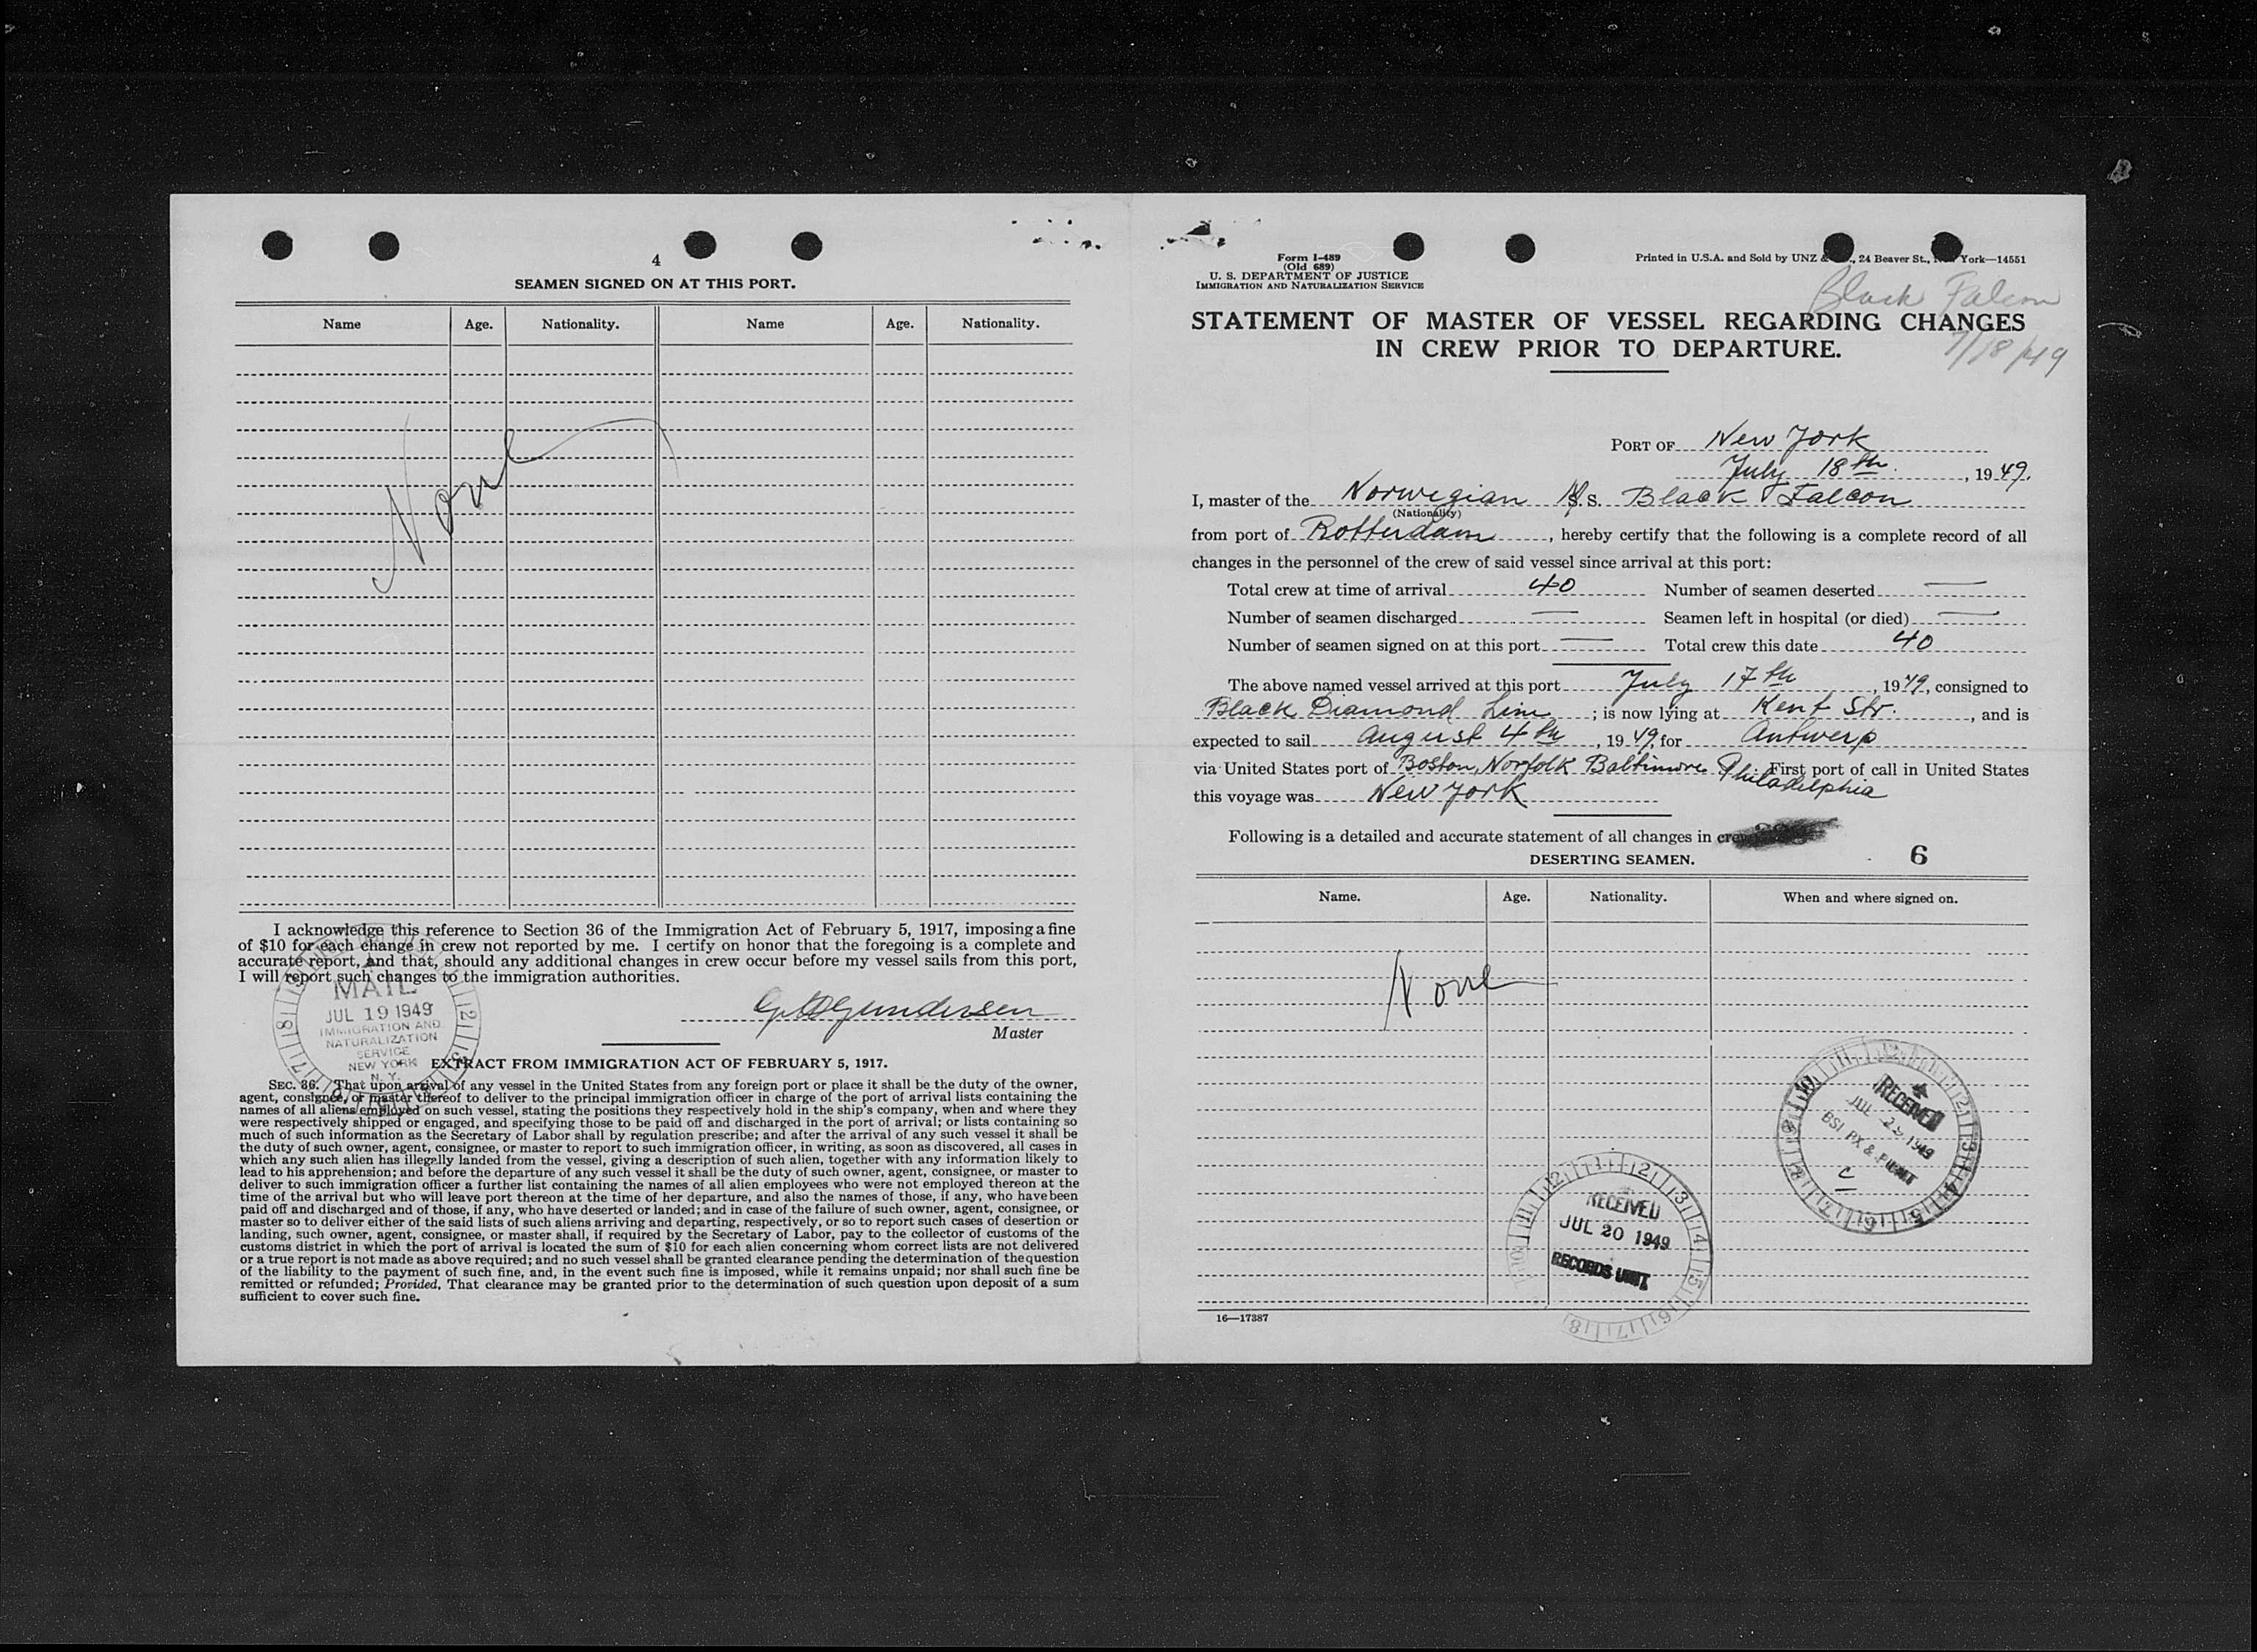 4
SEAMEN SIGNED ON AT THIS PORT.
Name Age. Nationality. Name Age. Nationality.
None
I acknowledge this reference to Section 36 of the Immigration Act of February 5, 1917, imposing a fine
of $10 for each change in crew not reported by me. I certify on honor that the foregoing is a complete and
accurate report, and that, should any additional changes in crew occur before my vessel sails from this port,
I will report such changes to the immigration authorities.
MAIL
JUL 19 1949
IMMIGRATION AND
NATURALIZATION
SERVICE
NEW YORK
N. Y.
Gundersen
Master
EXTRACT FROM IMMIGRATION ACT OF FEBRUARY 5, 1917.
SEC. 36. That upon arrival of any vessel in the United States from any foreign port or place it shall be the duty of the owner,
agent, consignee, or master thereof to deliver to the principal immigration officer in charge of the port of arrival lists containing the
names of all aliens employed on such vessel, stating the positions they respectively hold in the ship's company, when and where they
were respectively shipped or engaged, and specifying those to be paid off and discharged in the port of arrival; or lists containing so
much of such information as the Secretary of Labor shall by regulation prescribe; and after the arrival of any such vessel it shall be
the duty of such owner, agent, consignee, or master to report to such immigration officer, in writing, as soon as discovered, all cases in
which any such alien has illegally landed from the vessel, giving a description of such alien, together with any information likely to
lead to his apprehension; and before the departure of any such vessel it shall be the duty of such owner, agent, consignee, or master to
deliver to such immigration officer a further list containing the names of all alien employees who were not employed thereon at the
time of the arrival but who will leave port thereon at the time of her departure, and also the names of those, if any, who have been
paid off and discharged and of those, if any, who have deserted or landed; and in case of the failure of such owner, agent, consignee, or
master so to deliver either of the said lists of such aliens arriving and departing, respectively, or so to report such cases of desertion or
landing, such owner, agent, consignee, or master shall, if required by the Secretary of Labor, pay to the collector of customs of the
customs district in which the port of arrival is located the sum of $10 for each alien concerning whom correct lists are not delivered
or a true report is not made as above required; and no such vessel shall be granted clearance pending the determination of the question
of the liability to the payment of such fine, and, in the event such fine is imposed, while it remains unpaid; nor shall such fine be
remitted or refunded; Provided, That clearance may be granted prior to the determination of such question upon deposit of a sum
sufficient to cover such fine.
Form I-489
(Old 689)
U. S. DEPARTMENT OF JUSTICE
IMMIGRATION AND NATURALIZATION SERVICE
Printed in U.S.A. and Sold by UNZ & , 24 Beaver St., York—14551
Black Falcon
7/18/49
STATEMENT OF MASTER OF VESSEL REGARDING CHANGES
IN CREW PRIOR TO DEPARTURE.
PORT OF New York
July 18th , 1949.
I, master of the Norwegian M.S. Black Falcon
(Nationality)
from port of Rotterdam, hereby certify that the following is a complete record of all
changes in the personnel of the crew of said vessel since arrival at this port:
Total crew at time of arrival 40 Number of seamen deserted —
Number of seamen discharged — Seamen left in hospital (or died) —
Number of seamen signed on at this port — Total crew this date 40
The above named vessel arrived at this port July 17th, 1949, consigned to
Black Diamond Line; is now lying at Kent Str., and is
expected to sail August 4th, 1949, for Antwerp
via United States port of Boston, Norfolk Baltimore Philadelphia. First port of call in United States
this voyage was New York
Following is a detailed and accurate statement of all changes in crew
DESERTING SEAMEN. 6
Name. Age. Nationality. When and where signed on.
None
RECEIVED
JUL 1949
BSI PX &
C
RECEIVED
JUL 20 1949
RECORDS UNIT
16—17387